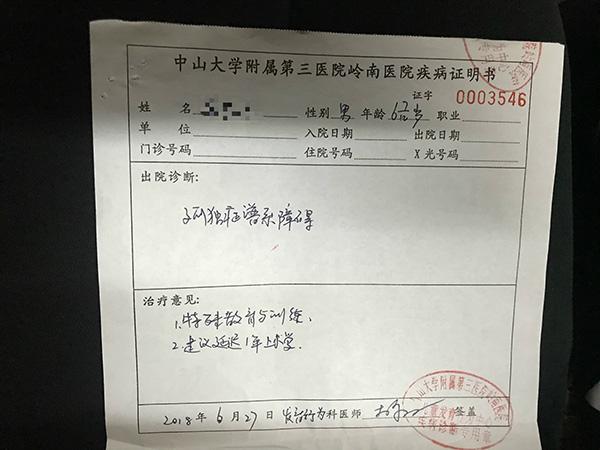 中山大学附属第三医院岭南医院疾病证明书
证字 0003546
姓 名 性别 男 年龄 6 岁 职业
单 位 入院日期 出院日期
门诊号码 住院号码 X光号码
出院诊断:
孤独症谱系障碍
治疗意见:
1.特殊教育与训练、
2.建议延迟1年上学。
2018 年 6 月 27 日 发育行为科医师 签盖
中山大学附属第三医院岭南医院
疾病诊断专用章